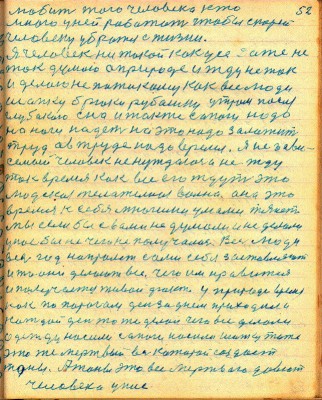 52
любит того человека кто
много уней работат чтобы скорей
человеку убратся с жизни.
Я человек не такой как усе За те не
так думаю о природе и жду не так
и делаю не потихому как все люди
шапку брюки рубашку утром после
глубокого сна и также сапоги надо
на ноги надеть на это надо заложить
труд а в труде надо время. Я не зави-
семый человек не нуждаюся а не жду
так время как все его ждут это
людская желательная волна, она это
время к себя многими умами тянет
мы если бы с вами не думали и не делали
у нас бы не чего не получалося. Все люди
весь год напролет сами себя заставляют
и то они делают все, чего им нравится
и получается живой факт у природе время
как по порогам день за днем приходило и
каждой ден то же делом чего все делали
одежду носили сапоги носили шапку тоже
это же мертвый в которой создает
тоны. А тоны это все мертваго доводят
человека унас